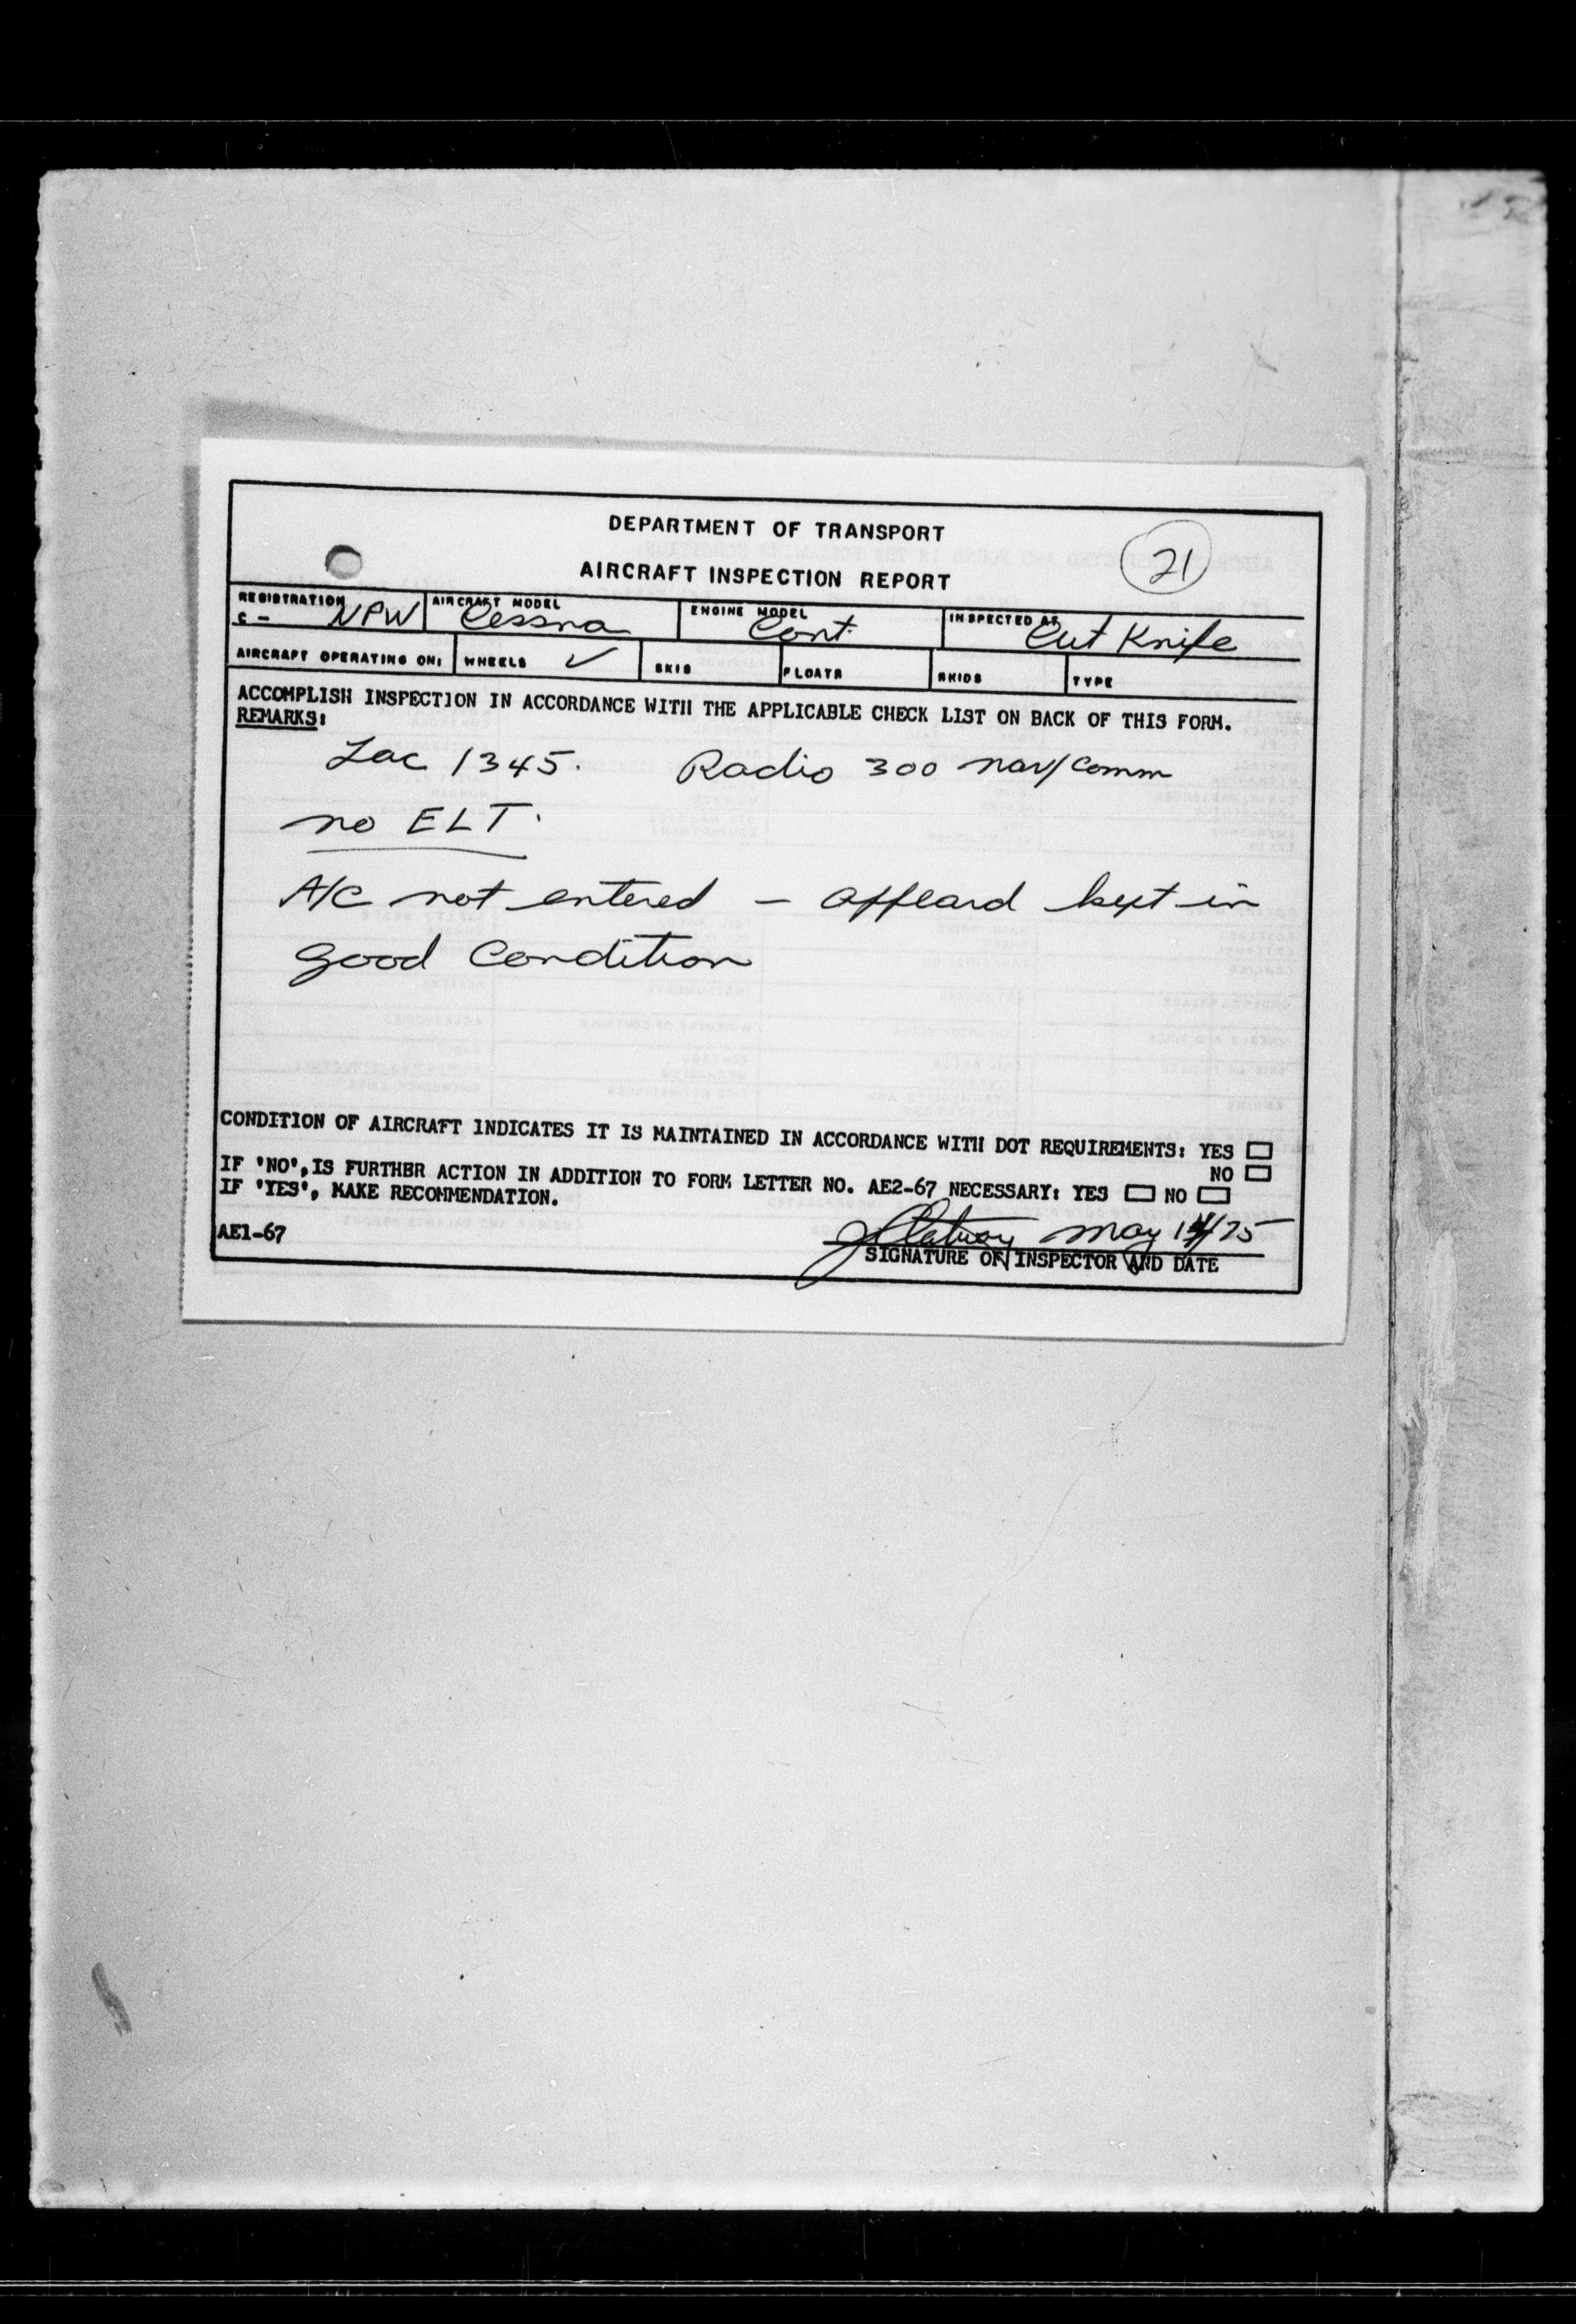 DEPARTMENT OF TRANSPORT
21
AIRCRAFT INSPECTION REPORT
REGISTRATION C - NPW AIRCRAFT MODEL Cessna ENGINE MODEL Cont. INSPECTED AT Cut Knife
AIRCRAFT OPERATING ON: WHEELS ✓ SKIS FLOATS SKIDS TYPE
ACCOMPLISH INSPECTION IN ACCORDANCE WITH THE APPLICABLE CHECK LIST ON BACK OF THIS FORM.
REMARKS:
1345. Radio 300 nav/comm
no ELT.
A/C not entered - kept in
good Condition
CONDITION OF AIRCRAFT INDICATES IT IS MAINTAINED IN ACCORDANCE WITH DOT REQUIREMENTS: YES
NO
IF 'NO', IS FURTHER ACTION IN ADDITION TO FORM LETTER NO. AE2-67 NECESSARY: YES NO
IF 'YES', MAKE RECOMMENDATION.
May /75
AE1-67
SIGNATURE OF INSPECTOR AND DATE